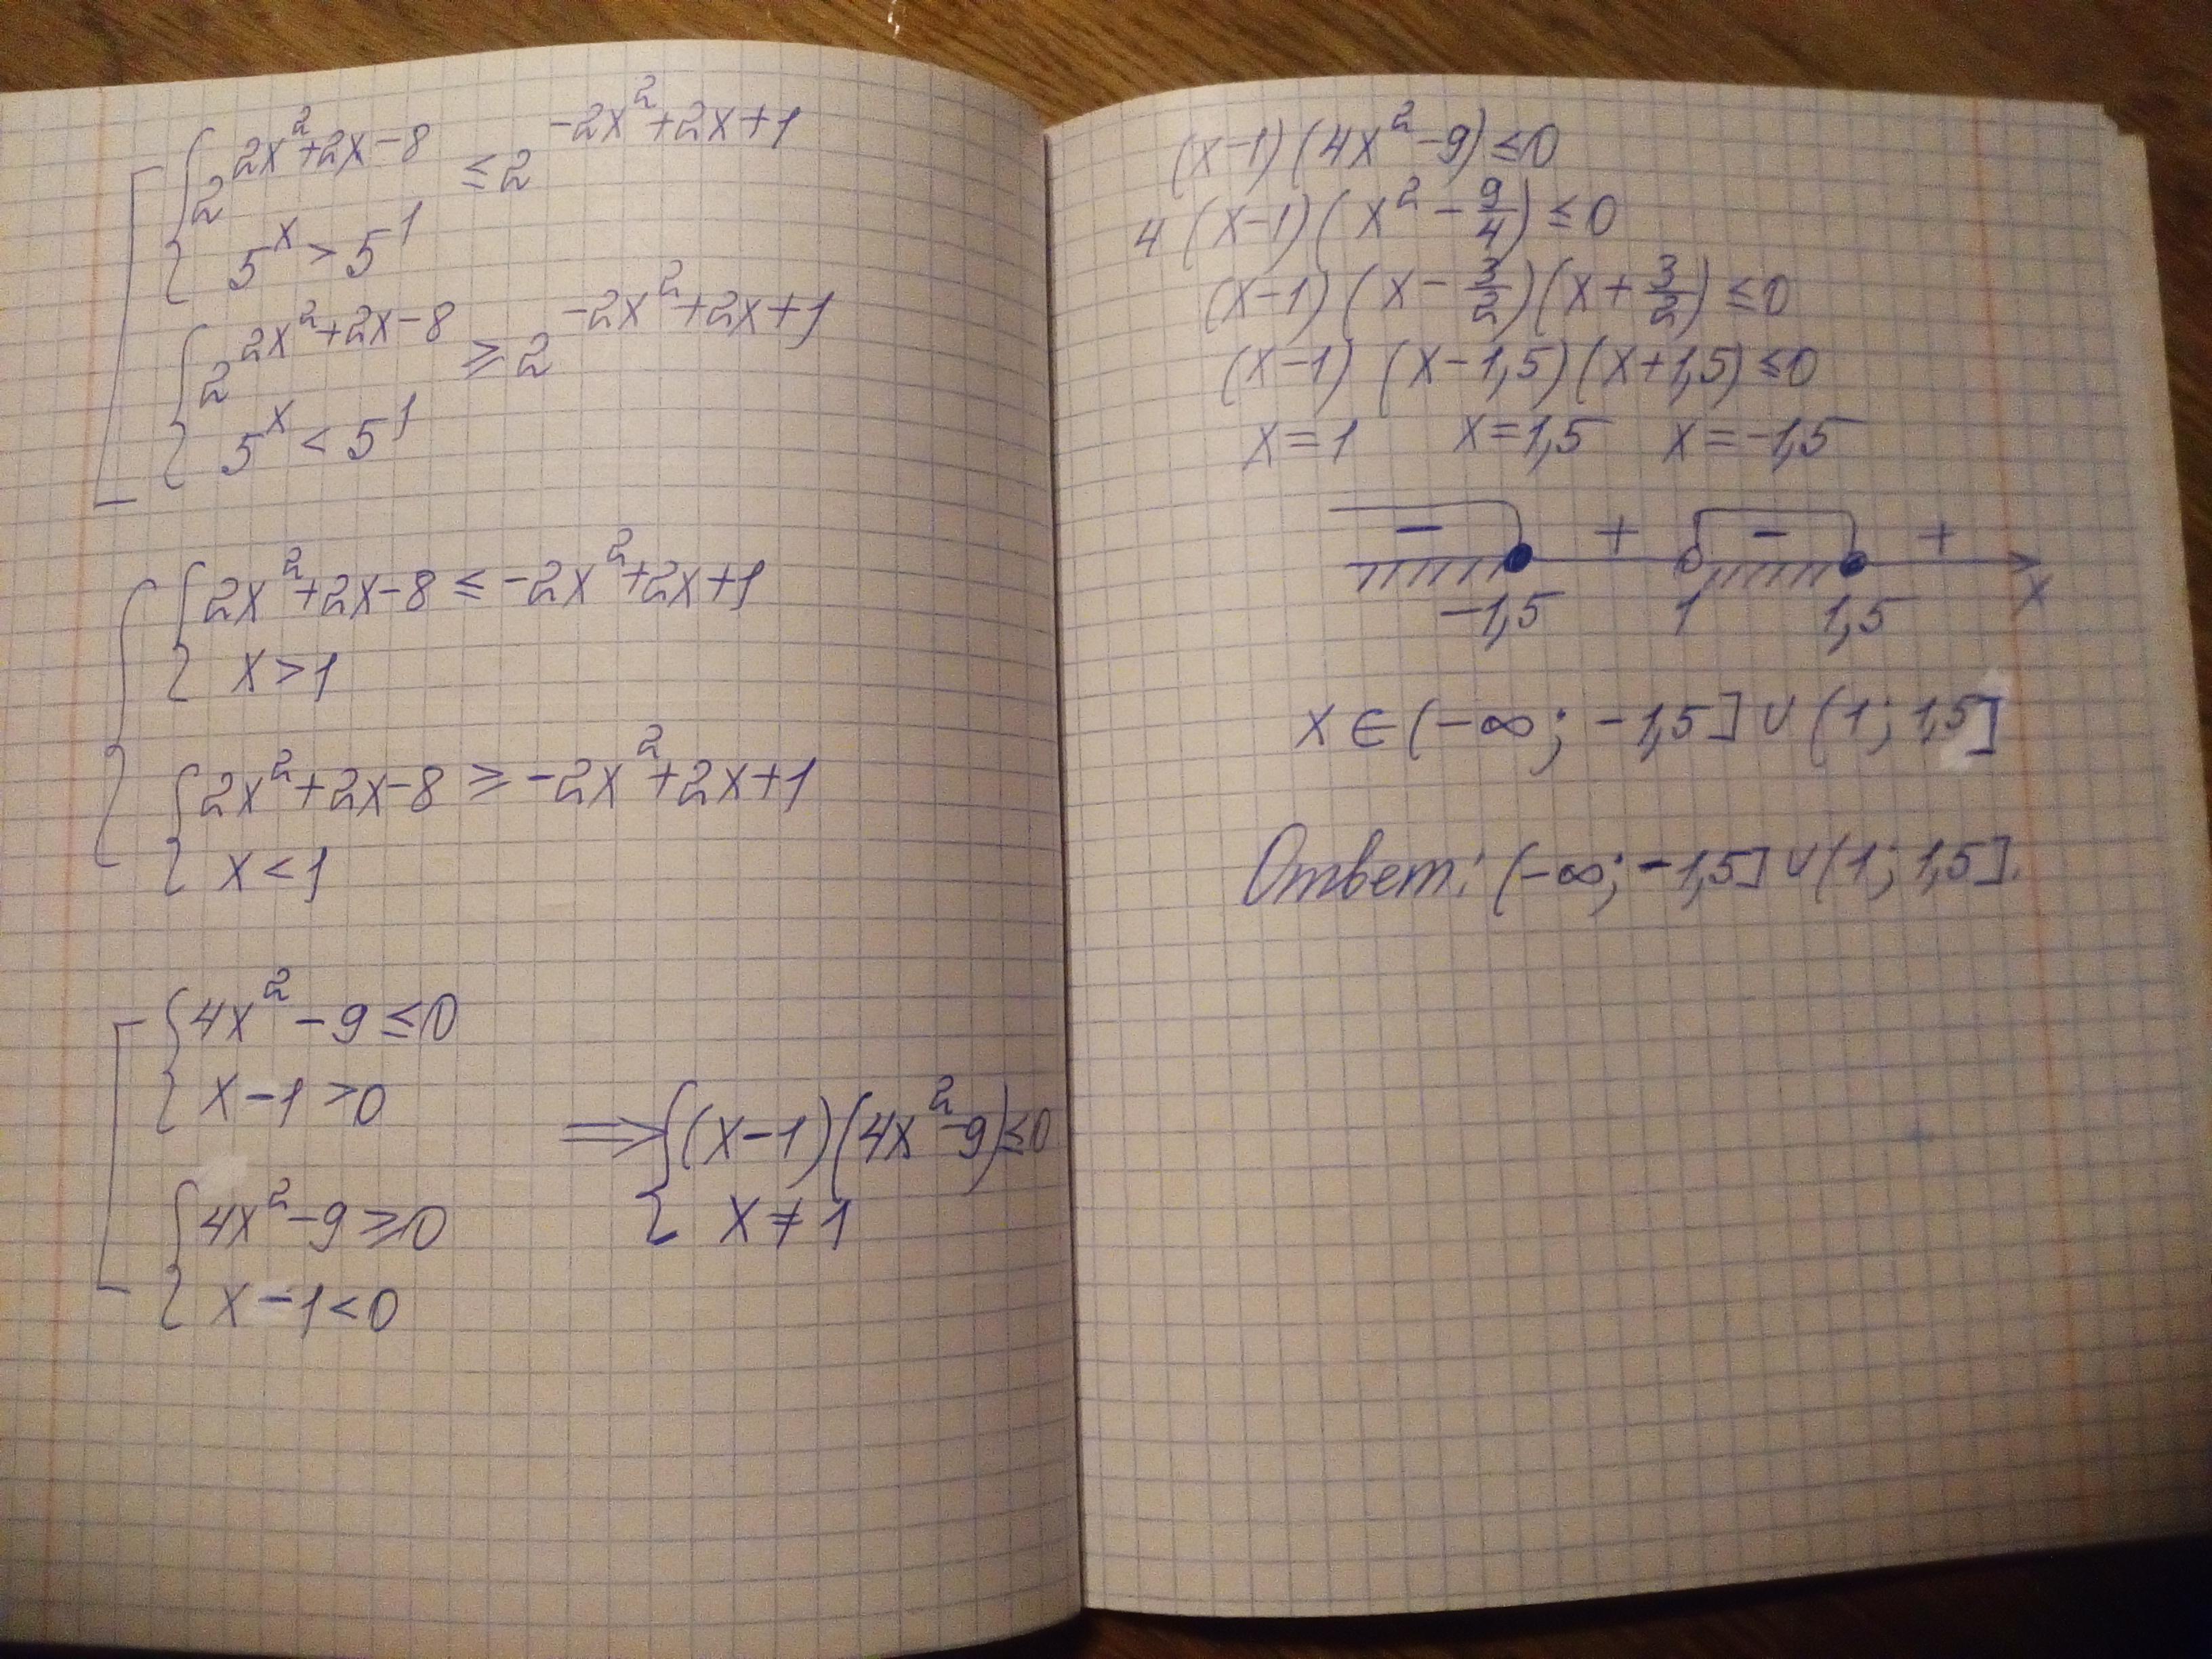 2^{2x²+2x-8} ≤ 2^{-2x²+2x+1}
5^x > 5^1
2^{2x²+2x-8} ≥ 2^{-2x²+2x+1}
5^x < 5^1
2x²+2x-8 ≤ -2x²+2x+1
x > 1
2x²+2x-8 ≥ -2x²+2x+1
x < 1
4x²-9 ≤ 0
x-1 > 0
4x²-9 ≥ 0
x-1 < 0
⇒ { (x-1)(4x²-9) ≤ 0
x ≠ 1
(x-1)(4x²-9) ≤ 0
4(x-1)(x² - 9/4) ≤ 0
(x-1)(x - 3/2)(x + 3/2) ≤ 0
(x-1)(x-1,5)(x+1,5) ≤ 0
x=1 x=1,5 x=-1,5
- + - +
-1,5 1 1,5 x
x ∈ (-∞; -1,5] ∪ (1; 1,5]
Ответ: (-∞; -1,5] ∪ (1; 1,5].